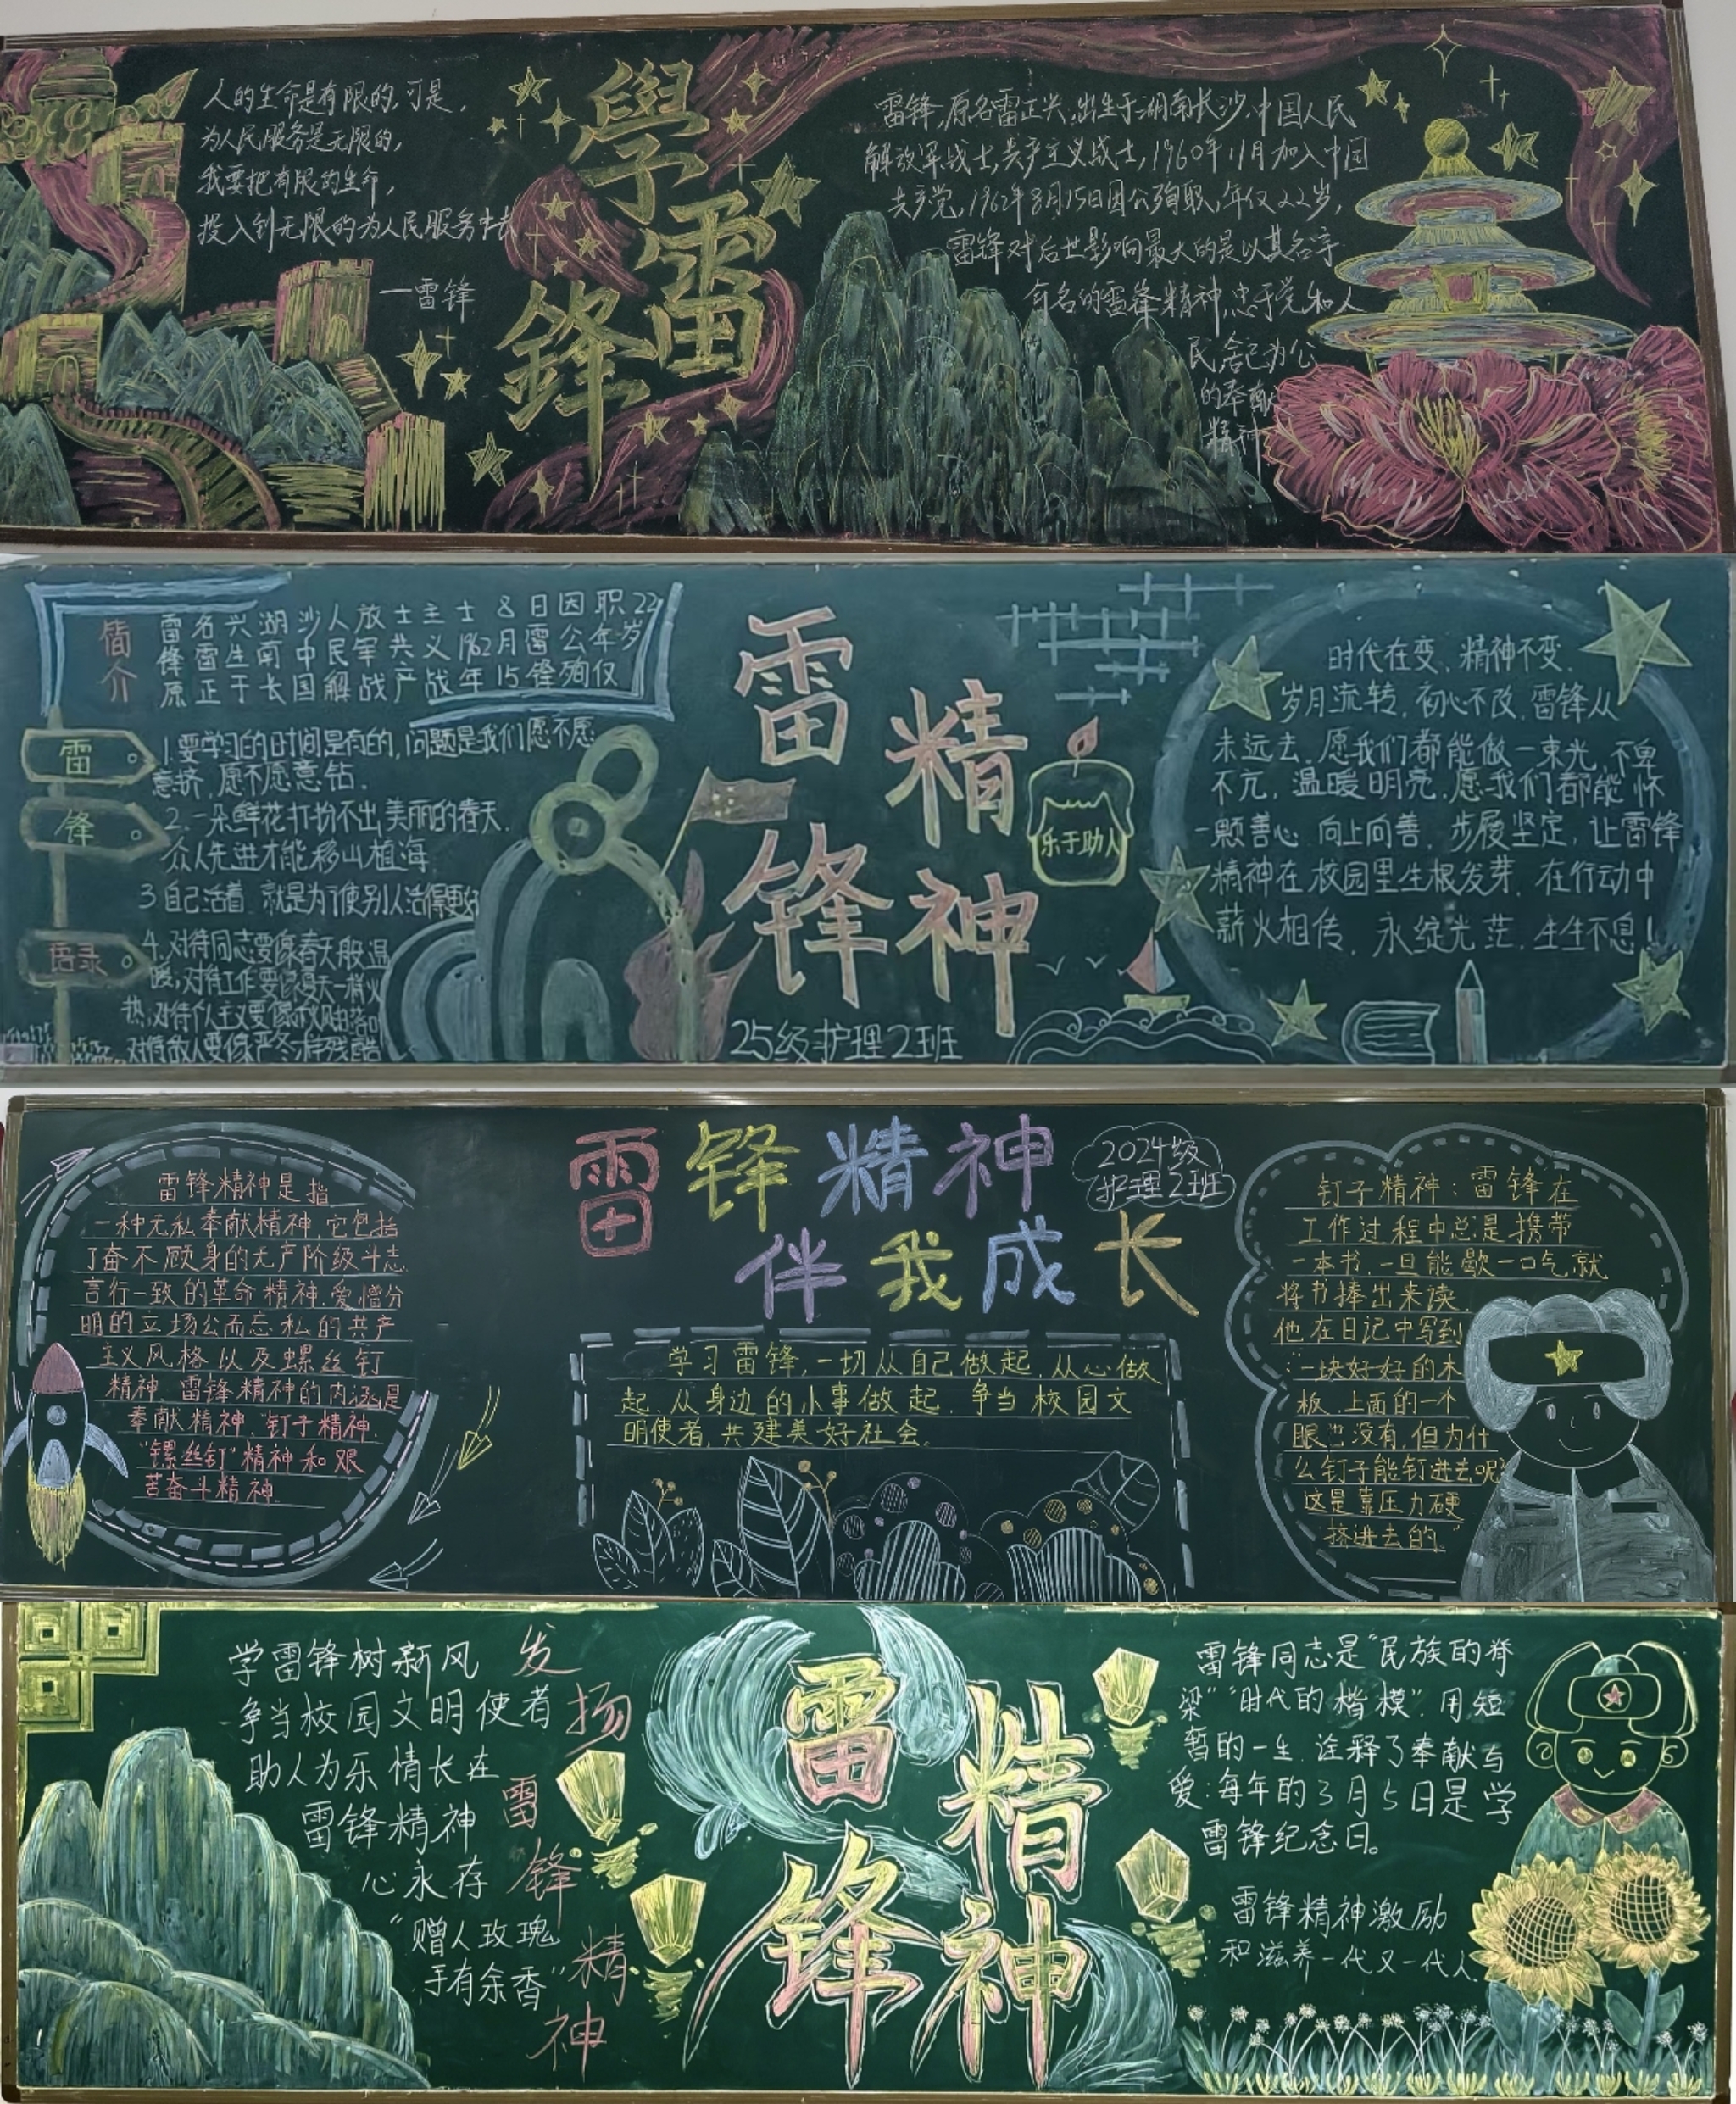 人的生命是有限的,可是,
为人民服务是无限的,
我要把有限的生命,
投入到无限的为人民服务中去
—雷锋
學
雷
鋒
雷锋,原名雷正兴,出生于湖南长沙,中国人民
解放军战士,共产主义战士,1960年11月加入中国
共产党,1962年8月15日因公殉职,年仅22岁,
雷锋对后世影响最大的是以其名字
命名的雷锋精神,忠于党和人
民,舍己为公
的奉献
精神.
简介
雷名兴湖沙人放士主士8日因职22
锋雷生南中民军共义1962月雷公年岁
原正于长国解战产战年15锋殉仅
雷
锋
语录
1.要学习的时间是有的,问题是我们愿不愿
意挤,愿不愿意钻.
2.一朵鲜花打扮不出美丽的春天.
众人先进才能移山填海
3自己活着 就是为了使别人活得更好
4.对待同志要像春天般温
暖,对待工作要像夏天一样火
热,对待个人主义要像秋风扫落叶
对待敌人要像严冬一样残酷
雷锋
精神
25级护理2班
乐于助人
时代在变,精神不变.
岁月流转,初心不改,雷锋从
未远去.愿我们都能做一束光,不卑
不亢,温暖明亮,愿我们都能怀
一颗善心 向上向善,步履坚定,让雷锋
精神在校园里生根发芽,在行动中
薪火相传,永绽光芒,生生不息!
雷锋精神
伴我成长
2024级
护理2班
雷锋精神是指
一种无私奉献精神,它包括
了奋不顾身的无产阶级斗志
言行一致的革命精神,爱憎分
明的立场公而忘私的共产
主义风格以及螺丝钉
精神,雷锋精神的内涵是
奉献精神,"钉子精神,
"镙丝钉"精神和艰
苦奋斗精神
学习雷锋,一切从自己做起,从心做
起,从身边的小事做起,争当校园文
明使者,共建美好社会.
钉子精神:雷锋在
工作过程中总是携带
一本书,一旦能歇一口气,就
将书捧出来读.
他在日记中写到
"一块好好的木
板,上面的一个
眼也没有,但为什
么钉子能钉进去呢?
这是靠压力硬
挤进去的。"
学雷锋树新风
争当校园文明使者
助人为乐情长在
雷锋精神
心永存
"赠人玫瑰
手有余香"
发扬雷锋精神
雷锋
精神
雷锋同志是"民族的脊
梁""时代的楷模".用短
暂的一生,诠释了奉献与
爱:每年的3月5日是学
雷锋纪念日。
雷锋精神激励
和滋养一代又一代人.